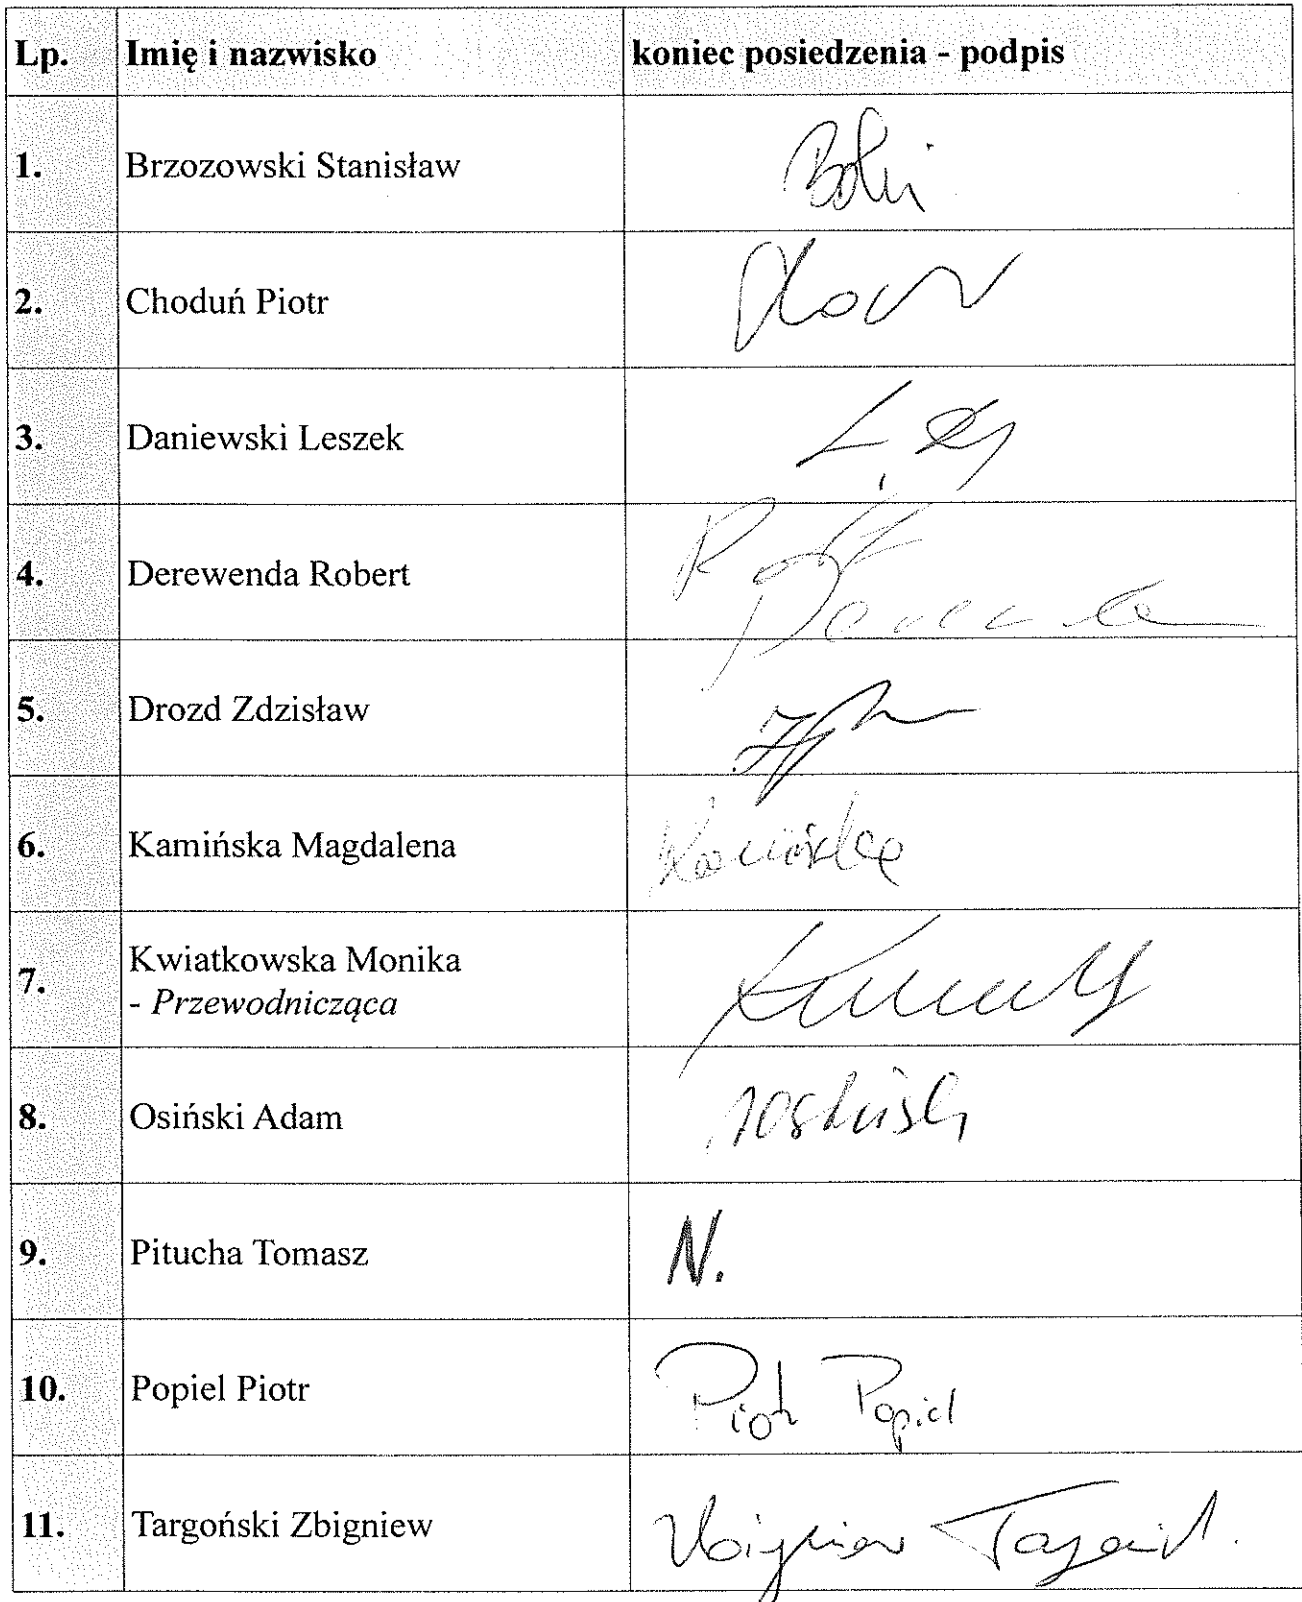 Lp. Imię i nazwisko koniec posiedzenia - podpis
1. Brzozowski Stanisław
2. Choduń Piotr
3. Daniewski Leszek
4. Derewenda Robert
5. Drozd Zdzisław
6. Kamińska Magdalena Kamińska
7. Kwiatkowska Monika
- Przewodnicząca
8. Osiński Adam
9. Pitucha Tomasz N.
10. Popiel Piotr Piotr Popiel
11. Targoński Zbigniew Zbigniew